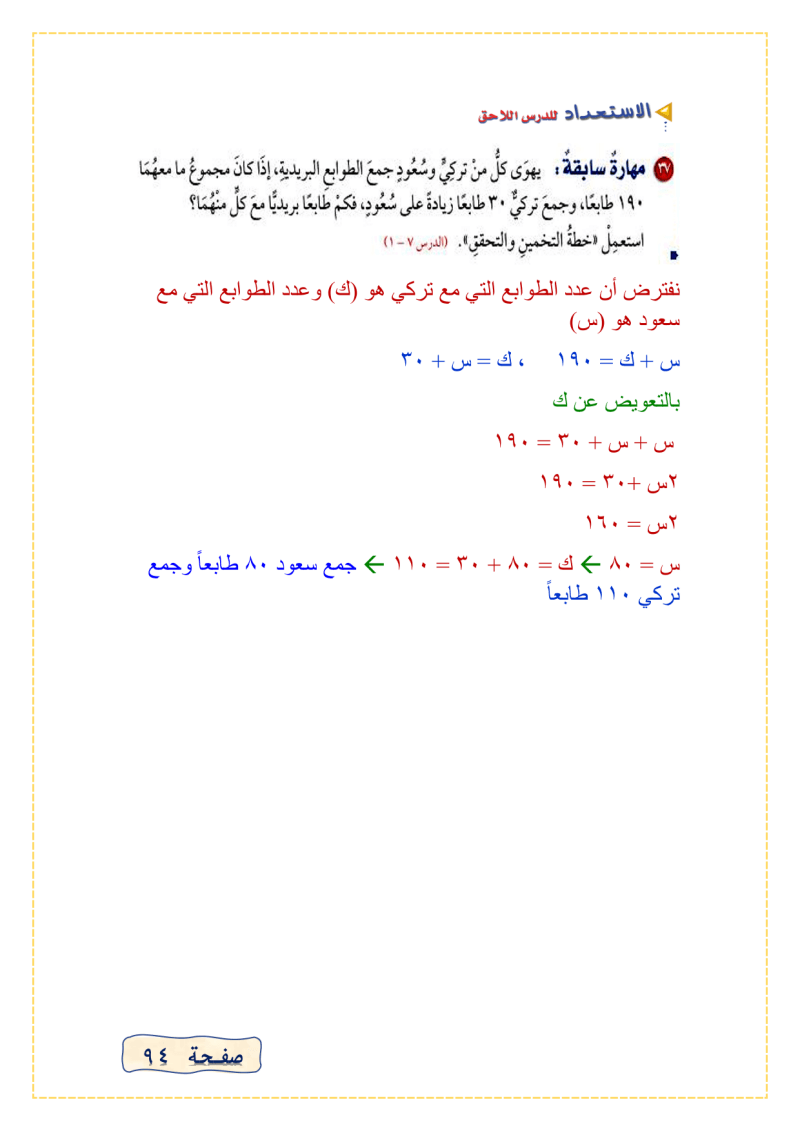 الاستعداد للدرس اللاحق
٣٧ مهارةٌ سابقةٌ: يهوَى كلُّ منْ تركيٍّ وسُعُودٍ جمعَ الطوابعِ البريديةِ، إذَا كانَ مجموعُ ما معهُمَا
١٩٠ طابعًا، وجمعَ تركيٌّ ٣٠ طابعًا زيادةً على سُعُودٍ، فكمْ طَابعًا بريديًّا معَ كلٍّ منْهُمَا؟
استعمِلْ «خطةُ التخمينِ والتحققِ». (الدرس ٧ – ١)
نفترض أن عدد الطوابع التي مع تركي هو (ك) وعدد الطوابع التي مع
سعود هو (س)
س + ك = ١٩٠ ، ك = س + ٣٠
بالتعويض عن ك
س + س + ٣٠ = ١٩٠
٢س +٣٠ = ١٩٠
٢س = ١٦٠
س = ٨٠ ← ك = ٨٠ + ٣٠ = ١١٠ ← جمع سعود ٨٠ طابعاً وجمع
تركي ١١٠ طابعاً
صفحة ٩٤